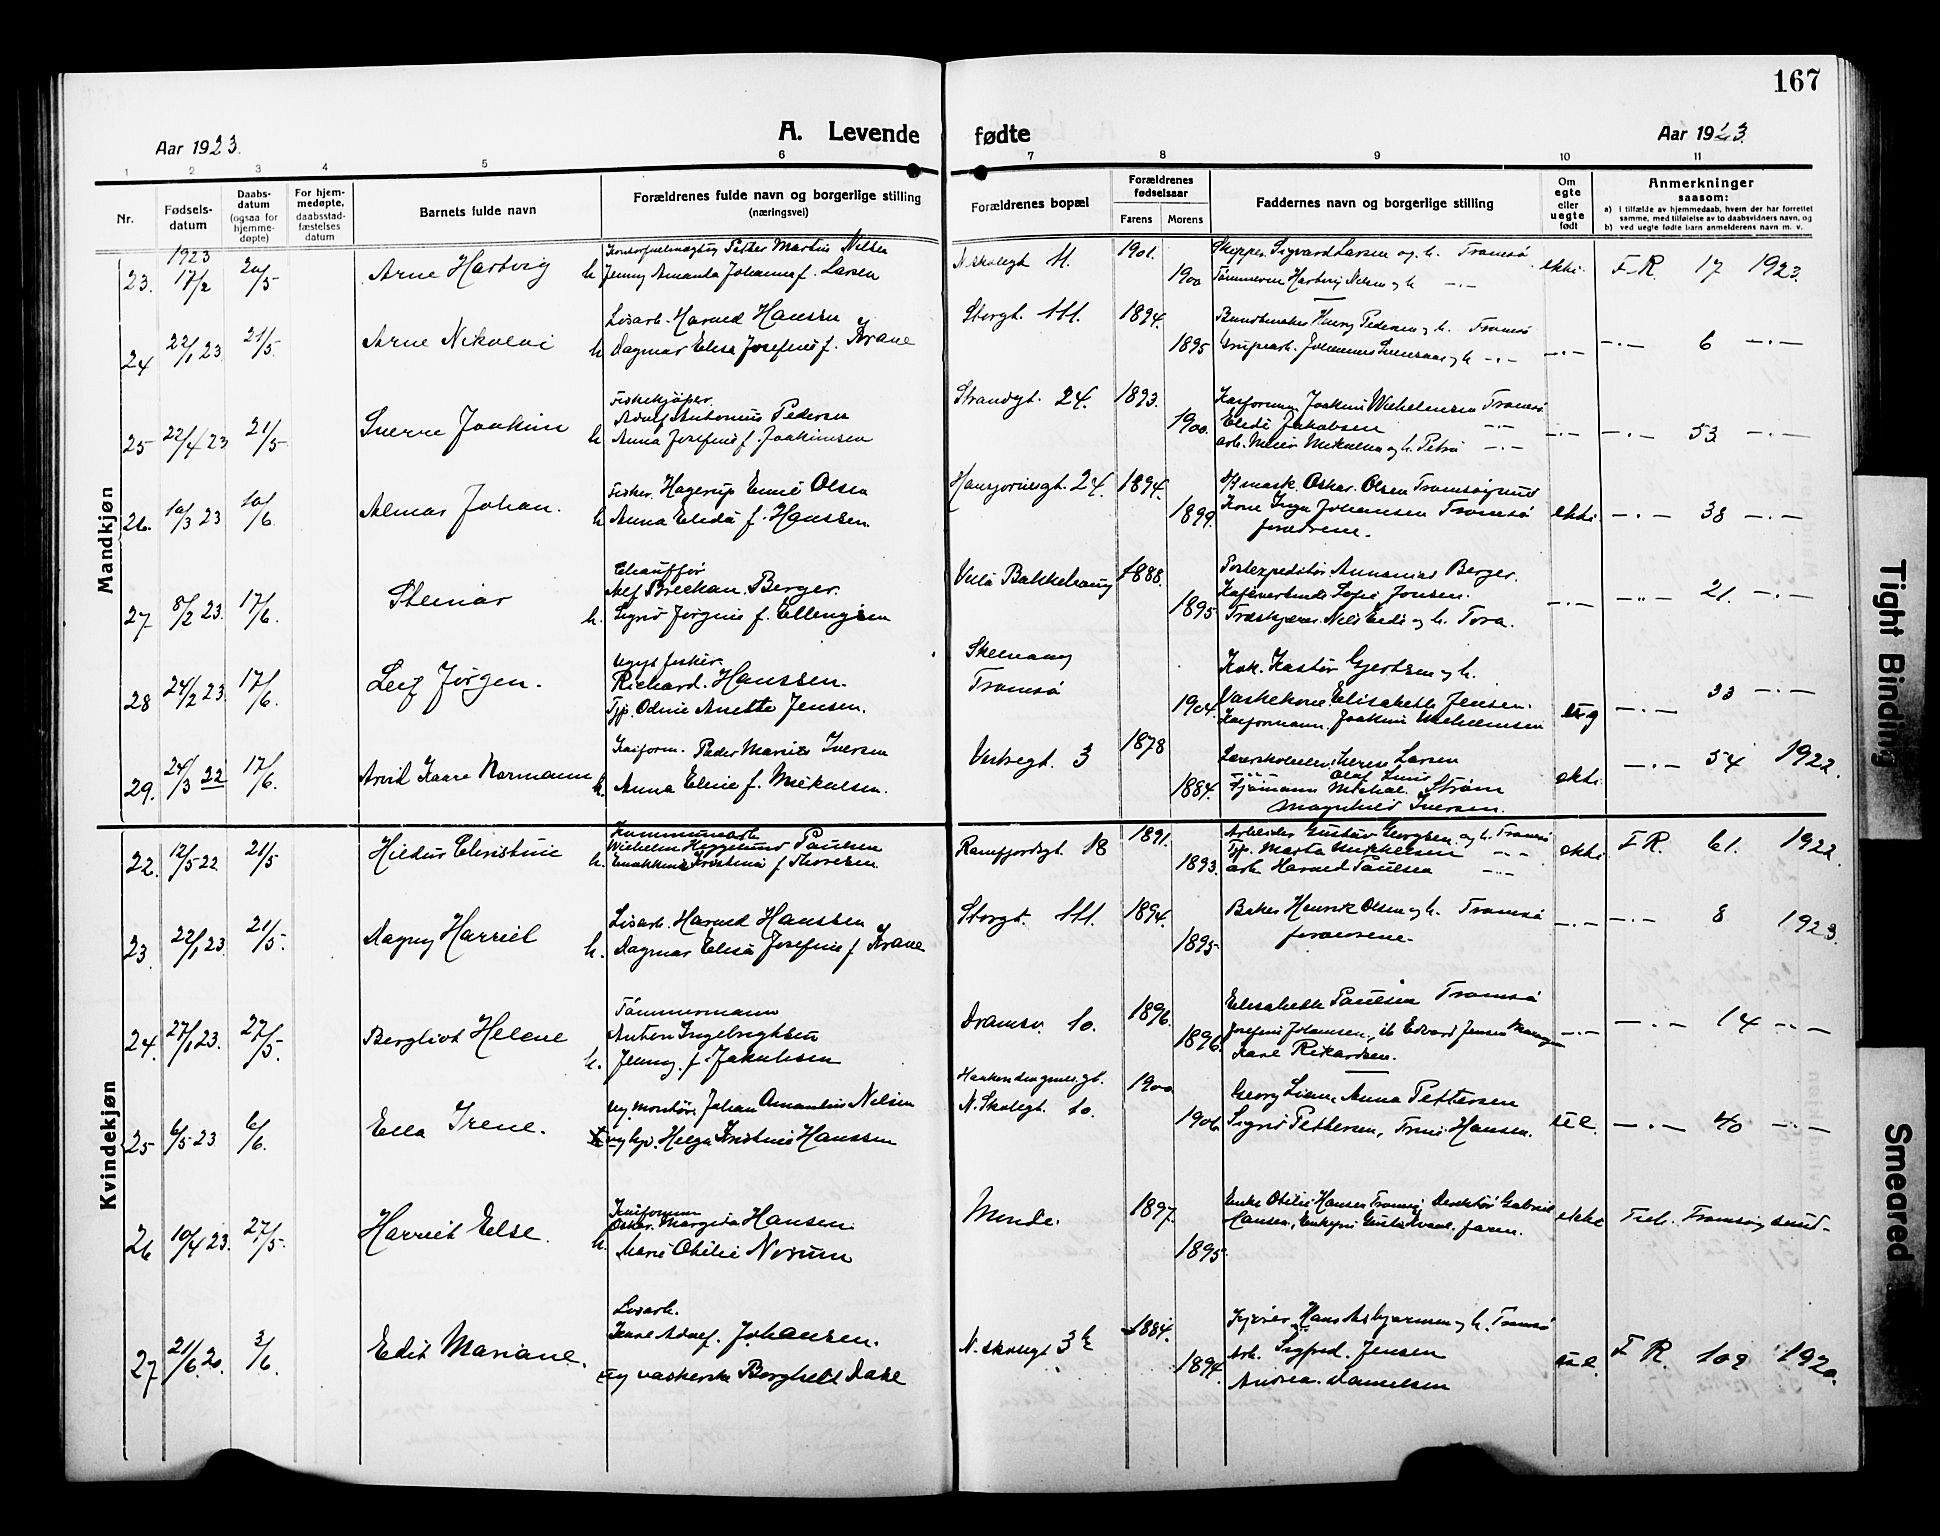 167
Aar 1923.
A. Levende
fødte
Aar 1923.
1 2 3 4 5 6 7 8 9 10 11
Nr.
Fødsels-
datum
Daabs-
datum
(ogsaa for
hjemme-
døpte)
For hjem-
medøpte,
daabsstad-
fæstelses
datum
Barnets fulde navn
Forældrenes fulde navn og borgerlige stilling
(næringsvei)
Forældrenes bopæl
Forældrenes
fødselsaar
Farens Morens
Faddernes navn og borgerlige stilling
Om
egte
eller
uegte
født
Anmerkninger
saasom:
a) i tilfælde av hjemmedaab, hvem der har forrettet
samme, med tilføielse av to daabsvidners navn, og
b) ved uegte fødte barn anmelderens navn m. v.
Mandkjøn
1923
23. 17/2 20/5 Arne Hartvig
Petter Martin Nilsen
h. Jenny Amanda Johanne f. Larsen
N. skolegt 11. 1901. 1900
Skipper Sigvard Larsen og h. Tromsø
Tømmerm Hartvig Nilsen og h —·—
ekte F-R. 17 1923.
24 22/1 23 21/5. Arne Nikolai
Løsarb. Harald Hanssen
h. Dagmar Elisa Josefine f. Krane
Storgt. 111. 1894. 1895
Buntmaker Henry Pedersen og h. Tromsø
Johannes og h —·—
—·— —·— 6 —·—
25 22/4 23 21/5- Sverre Joakim
Fiskekjøper.
Adolf Antonius Pedersen
h. Anna Josefine f. Joakimsen
Strandgt. 24. 1893. 1900.
Kaiformann Joakim Wilhelmsen Tromsø
Elidi Jakobsen —·—
arb. Meier Mikalsen og h. Petra —·—
—·— —·— 53 —·—
26. 10/3 23 10/6. Almar Johan.
Fisker. Hagerup Emil Olsen
h. Anna Elida f. Hanssen.
24. 1894. 1899.
Oskar Olsen Tromsøysund
Kone Inga Johansen Tromsø
forældrene.
ekte. —·— 38 —·—
27 8/2 23. 17/6. Steinar
Chauffør
Alf Berger.
h. Sigrid Jørgine f. Ellingsen
Villa Bakkehaug 1888. 1895
Postexpeditør Annanias Berger.
Sofie Jonsen.
og h. Tora.
—·— —·— 21. —·—
28 24/2 23. 17/6. Leif Jørgen.
ugift fisker.
Richard. Hanssen.
Tjp. Odine Anette Jensen.
Tromsø
1904.
Kok. Kastor Gjertsen og h.
Vaskekone. Elisabeth Jensen.
Kaiformann. Joakim Wilhelmsen
ueg —·— 33 —·—
29. 24/3 22 17/6. Arvid Kaare Normann
Kaiform. Peder Marius Iversen
h. Anna Eline f. Mikalsen.
Vestregt. 3 1878 1884.
Larsen
Strøm
Magnhild Iversen.
ekte. —·— 54 1922.
Kvindekjøn
22. 12/5 22 21/5 Hildur Christine
Kommunearb
Wilhelm Heggelund Paulsen
h. Kristina f Thoresen
Ramfjordgt. 18 1891. 1893.
Arbeider Gustav Georgsen og h. Tromsø
Tjp. Marta Mikkelsen —·—
arb Harald Paulsen —·—
ekte F R. 61. 1922.
23. 22/1 23 21/5. Dagny Harriet
Løsarb. Harald Hanssen
h. Dagmar Elisa Josefine f Krane
Storgt. 111. 1894. 1895
Baker Henrik Olsen og h. Tromsø
forældrene.
—·— —·— 8 1923.
24. 27/1 23. 27/5. Bergliot Helene
Tømmermann
Anton Ingebrigtsen
h. Jenny f. Jakobsen
Dramsv. 10. 1896. 1896.
Elisabeth Paulsen Tromsø
Josefine Johansen, Edvard Jensen
Karl Rikardsen.
—·— —·— 14 —·—
25 6/5 23 6/6. Ella Irene.
Johan Amandus Nilsen
ug tjp. Helga Kristine Hanssen
N. Skolegt. 10. 1900 1906
Georg Lian, Anna Pettersen
Sigrid Pettersen, Hansen.
—·— 40 —·—
26 10/4 23. 27/5. Harriet Else.
Kaiformann
Oskar. Margido Hansen
h. Marie Otilie Norum
1897. 1895
Enke Otilie Hansen Gabriel
Hansen, faren.
ekte Tromsøysund-
27 21/6. 20. 3/6. Edit Mariane.
Løsarb.
Karl Adolf. Johansen.
ug vaskerske Borghild Dahl
N. skolegt 3b 1884. 1894.
Hans Asbjørnsen og h. Tromsø
Arb. Sigfred. Jensen
Andrea. Danielsen
F R. 109 1920.
Tight Binding
Smeared